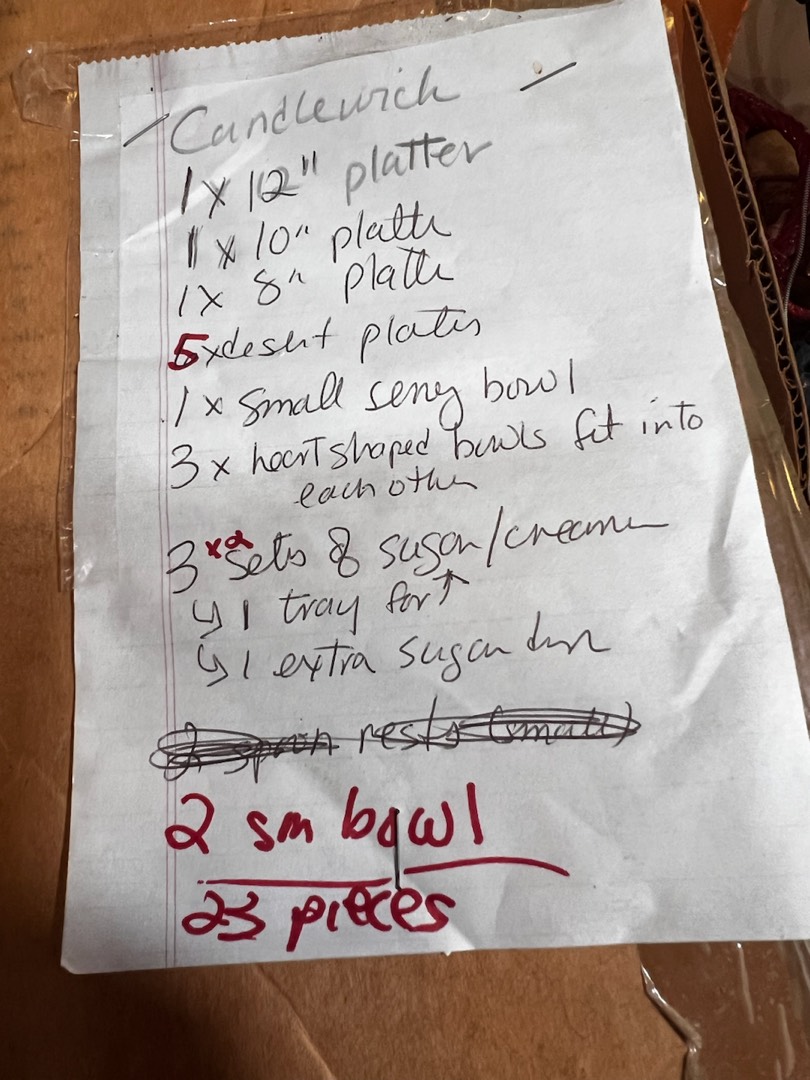 Candlewick
1 x 12" platter
1 x 10" platter
1 x 8" platter
5 x desert plates
1 x small serving bowl
3 x heart shaped bowls fit into
each other
3 x2 sets of sugar/creamer
↳ 1 tray for ↑
↳ 1 extra sugar
2 spoon rests (small)
2 sm bowl
23 pieces